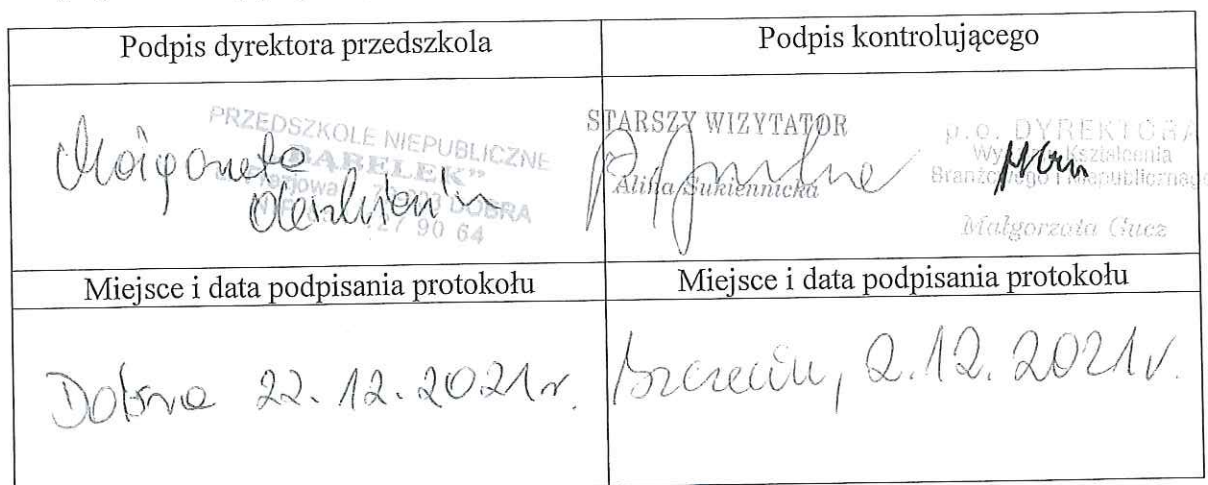 Podpis dyrektora przedszkola
Podpis kontrolującego
PRZEDSZKOLE NIEPUBLICZNE
"BĄBELEK"
DOBRA
27 90 64
STARSZY WIZYTATOR
Alina Sukiennicka
p.o. DYREKTORA
Kształcenia
Branżowego i Niepublicznego
Małgorzata Gucz
Miejsce i data podpisania protokołu
Miejsce i data podpisania protokołu
Dobra 22.12.2021r.
Szczecin, 2.12.2021r.